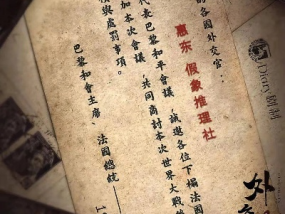 的各國外交官:
惠东 假象推理社
代表巴黎和平會議,誠邀各位下榻法國
加本次會議,共同商討本次世界大戰
與處罰事項。
巴黎和會主席、法國總統——1
Diary
外